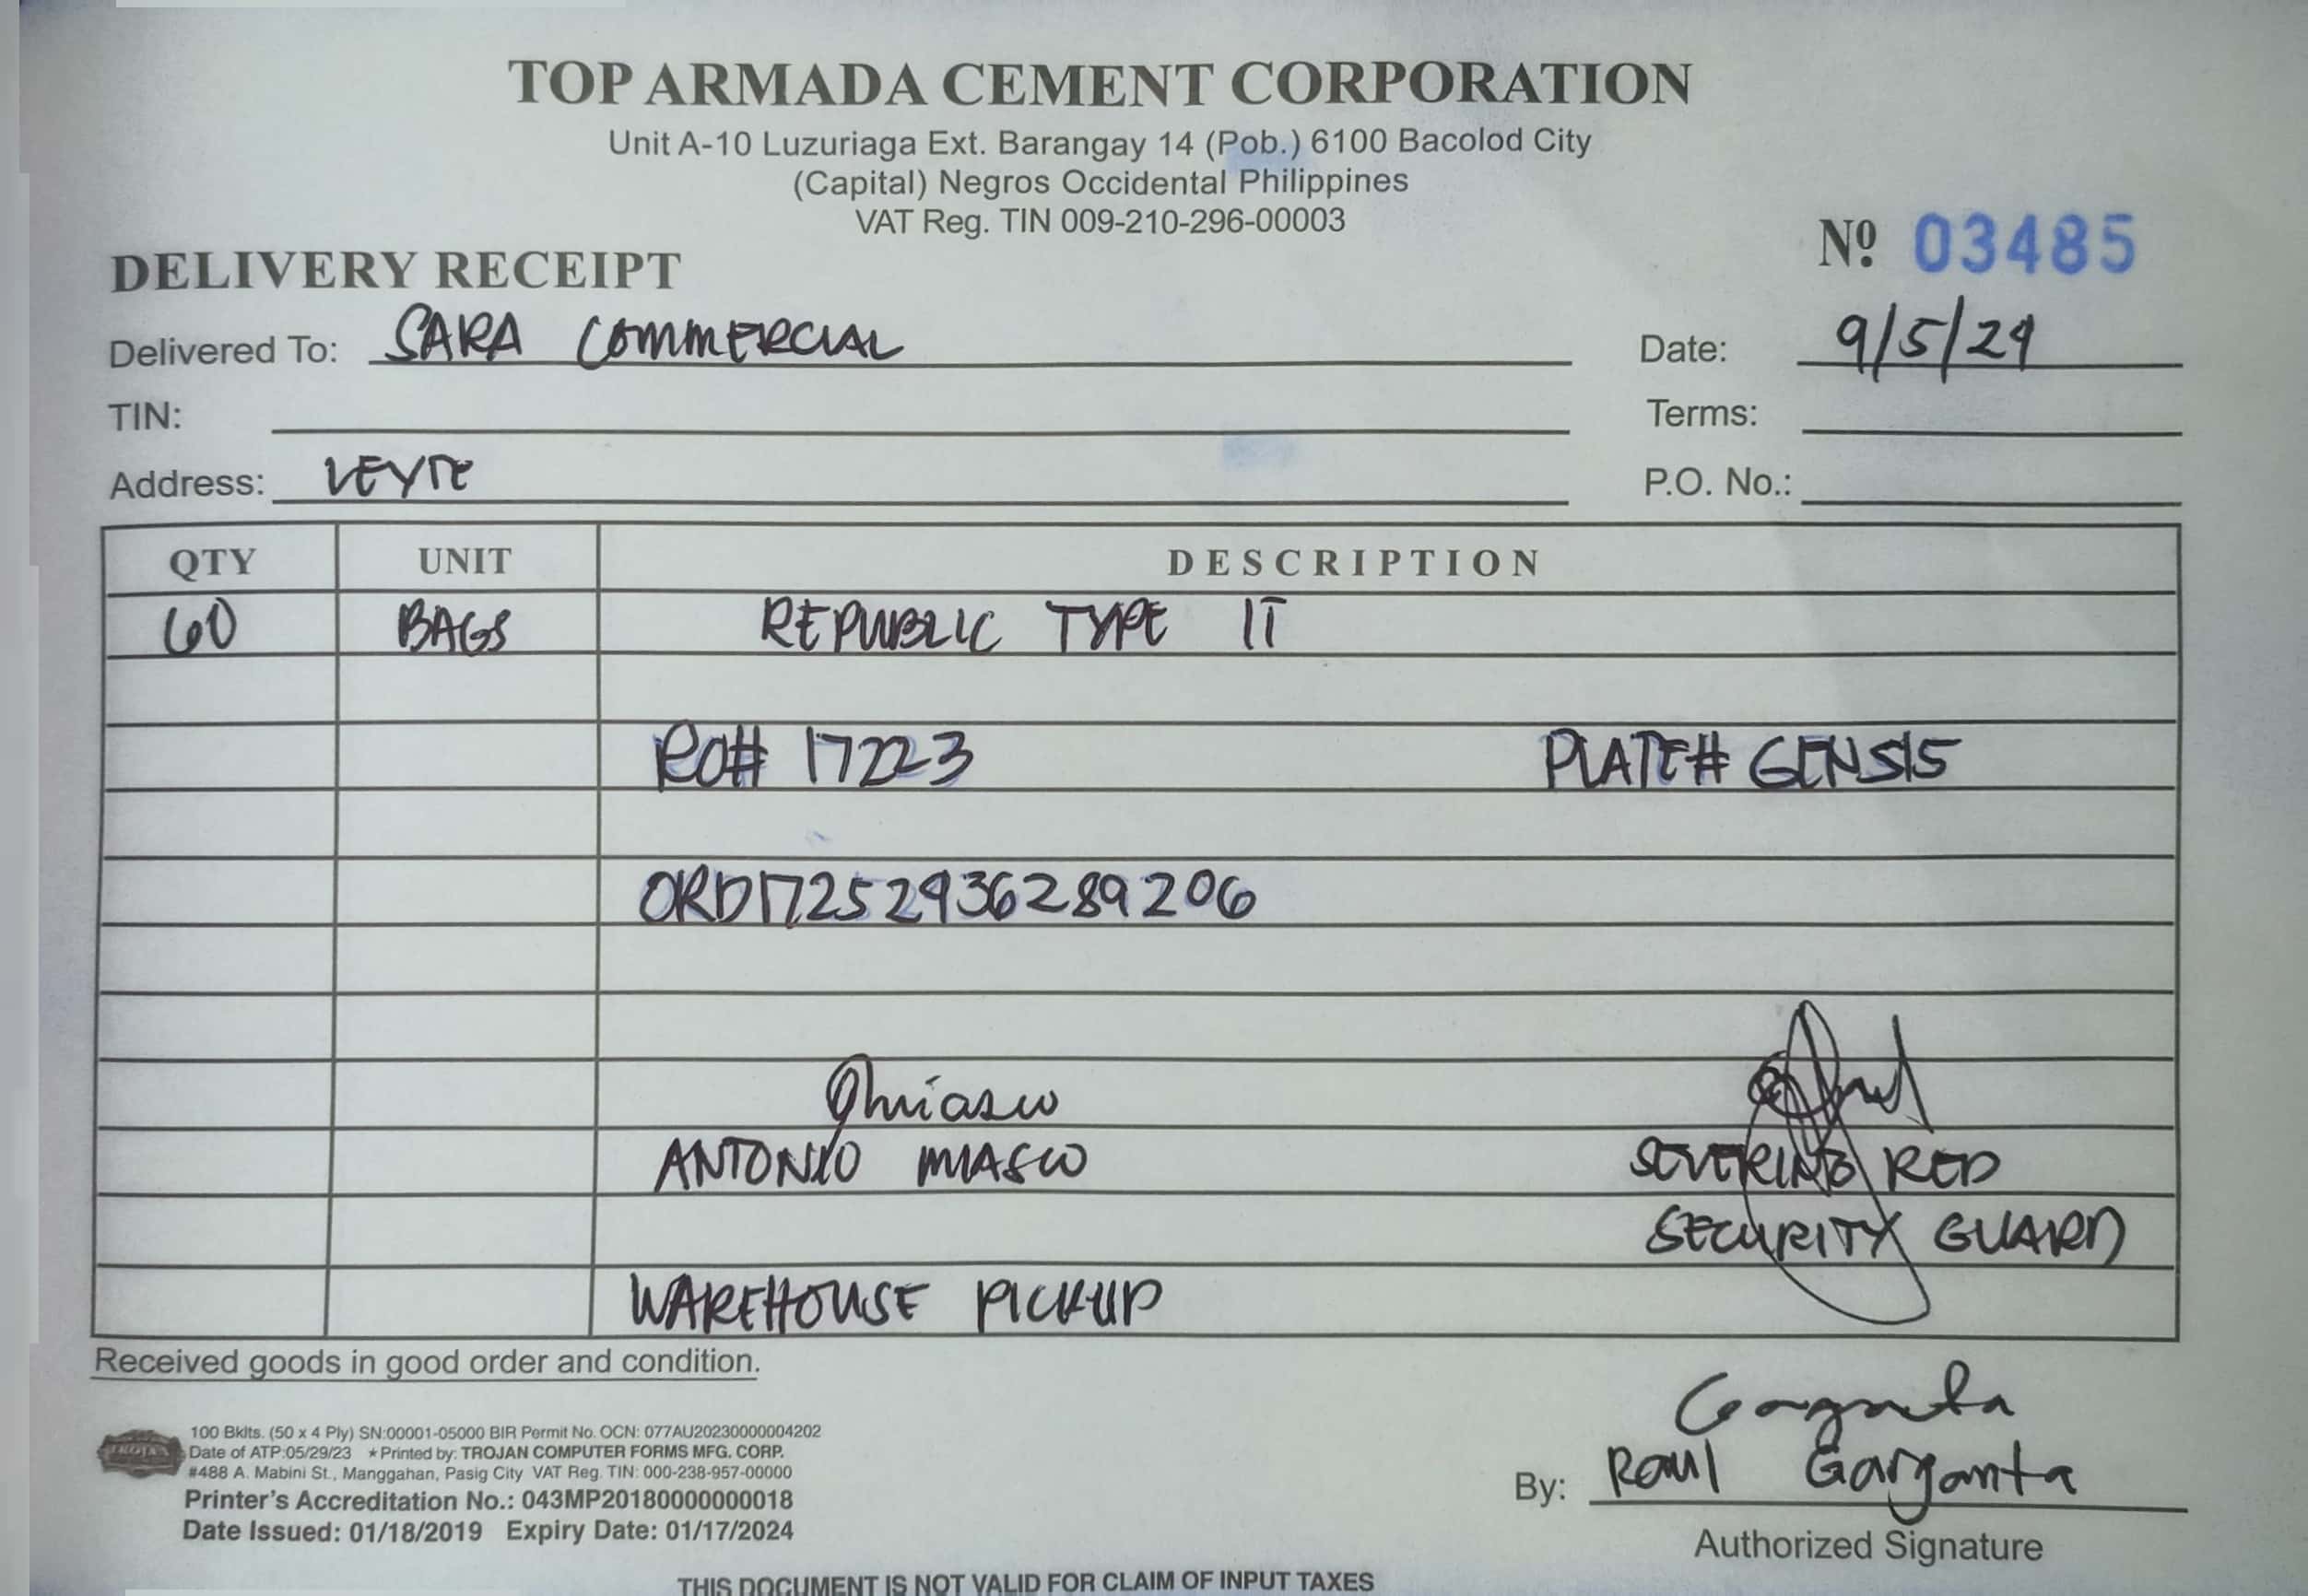 TOP ARMADA CEMENT CORPORATION
Unit A-10 Luzuriaga Ext. Barangay 14 (Pob.) 6100 Bacolod City
(Capital) Negros Occidental Philippines
VAT Reg. TIN 009-210-296-00003
Nº 03485
DELIVERY RECEIPT
Delivered To: SARA COMMERCIAL Date: 9/5/24
TIN: Terms:
Address: LEYTE P.O. No.:
QTY UNIT DESCRIPTION
60 BAGS REPUBLIC TYPE 1T
RO# 17223 PLATE# GENSIS
ORD1725293628920G
Qmiasco
ANTONIO MIASCO SEVERINO RED
SECURITY GUARD
WAREHOUSE PICKUP
Received goods in good order and condition.
TROJAN
100 Bklts. (50 x 4 Ply) SN:00001-05000 BIR Permit No. OCN: 077AU20230000004202
Date of ATP:05/29/23 ★Printed by: TROJAN COMPUTER FORMS MFG. CORP.
#488 A. Mabini St., Manggahan, Pasig City VAT Reg. TIN: 000-238-957-00000
Printer's Accreditation No.: 043MP20180000000018
Date Issued: 01/18/2019 Expiry Date: 01/17/2024
Garganta
By: Raul Garganta
Authorized Signature
THIS DOCUMENT IS NOT VALID FOR CLAIM OF INPUT TAXES